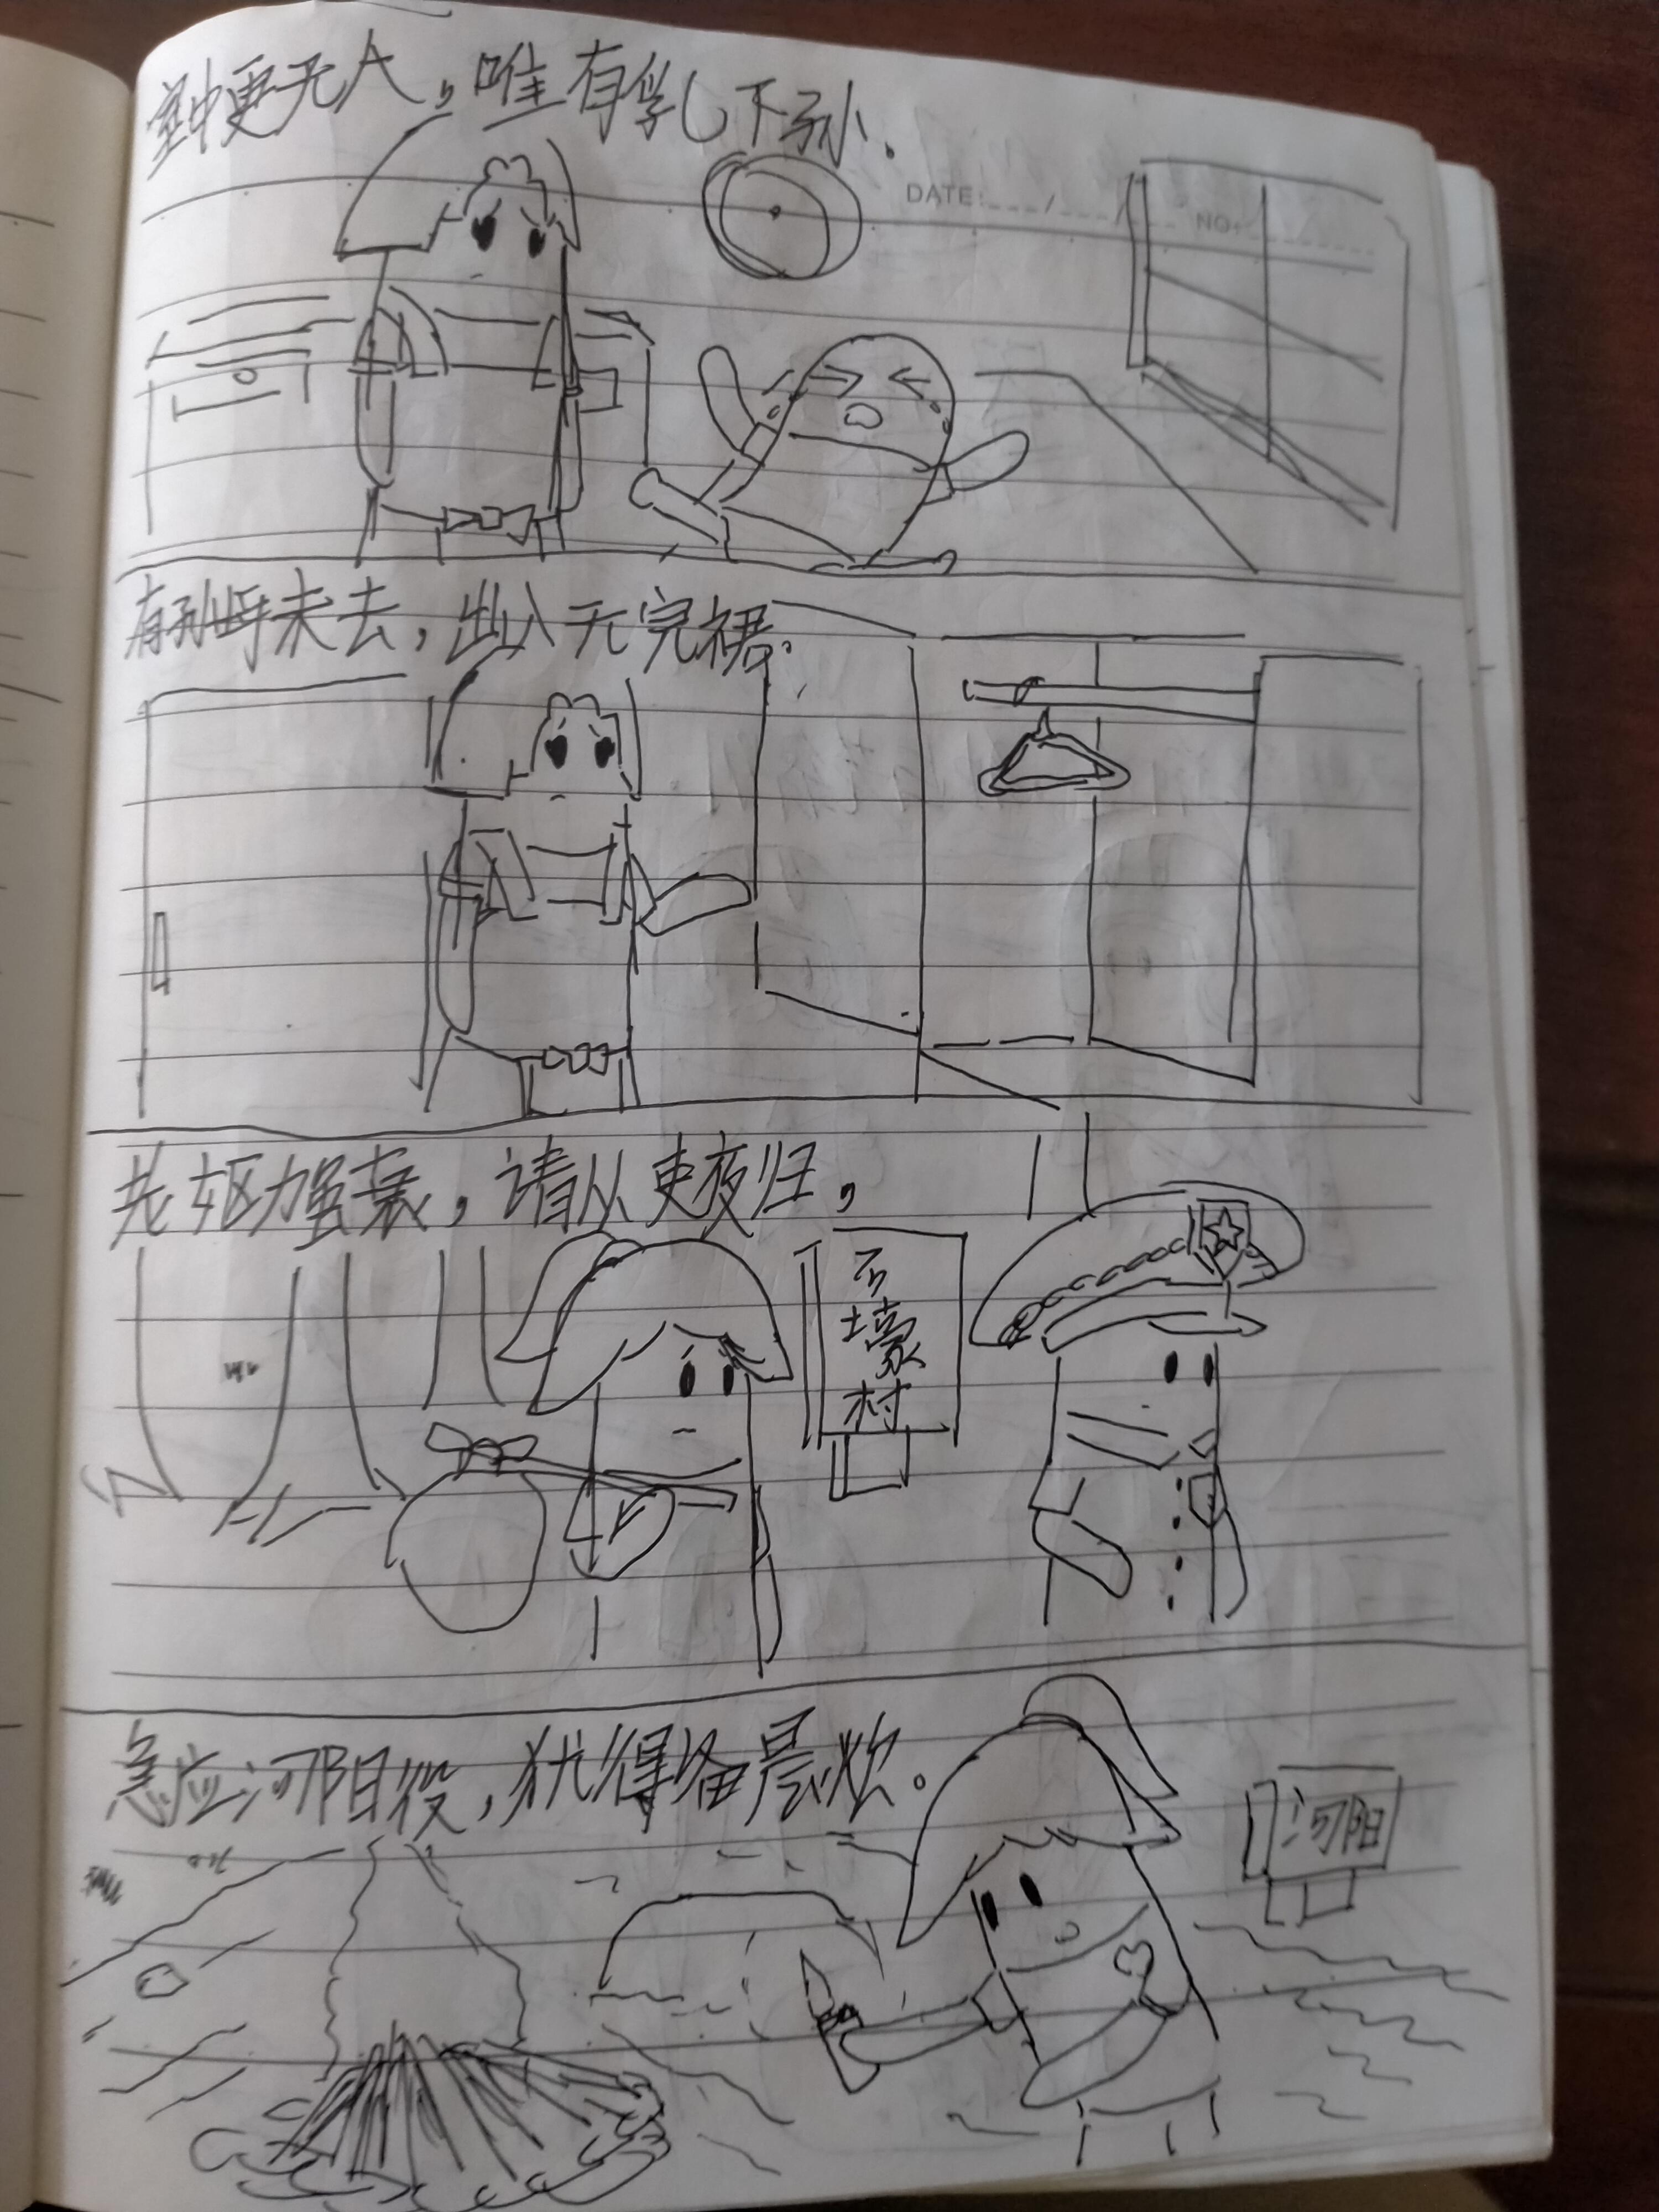 室中更无人，唯有乳下孙.
DATE: / / NO:
有孙母未去，出入无完裙.
老妪力虽衰，请从吏夜归，
石壕村
急应河阳役，犹得备晨炊。
河阳